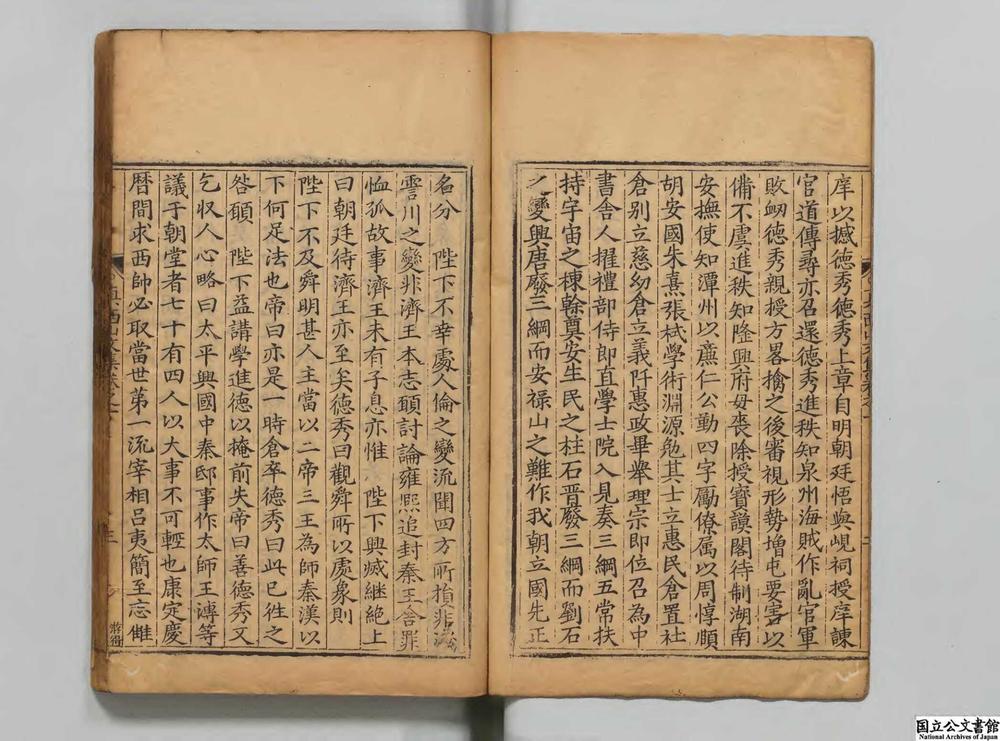 庠以撼德秀德秀上章自明朝廷悟與峴祠授庠諫
官道傳尋亦召還德秀進秩知泉州海賊作亂官軍
敗衂德秀親授方畧擒之後審視形勢增屯要害以
備不虞進秩知隆興府毋喪除授寶謨閣待制湖南
安撫使知潭州以廉仁公勤四字勵僚属以周惇頤
胡安國朱熹張栻學術淵源勉其士立惠民倉置社
倉别立慈幼倉立義阡惠政畢舉理宗即位召為中
書舎人擢禮部侍郎直學士院入見奏三綱五常扶
持宇宙之棟榦奠安生民之柱石晋廢三綱而劉石
之變興唐廢三綱而安禄山之難作我朝立國先正
名分　陛下不幸處人倫之變流聞四方所損非淺
霅川之變非濟王本志願討論雍熈追封秦王舎罪
恤孤故事濟王未有子息亦惟　陛下興滅継絶上
曰朝廷待濟王亦至矣德秀曰觀舜所以處象則
陛下不及舜明甚人主當以二帝三王為師秦漢以
下何足法也帝曰亦是一時倉卒德秀曰此已徃之
咎願　陛下益講學進德以掩前失帝曰善德秀又
乞収人心略曰太平興國中秦邸事作太師王溥等
議于朝堂者七十有四人以大事不可輕也康定慶
暦間求西帥必取當世第一流宰相吕夷簡至忘雠
三
国立公文書館
National Archives of Japan